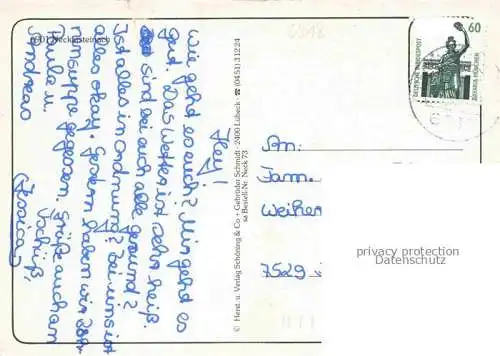 6901 Neckarsteinach
Hay!
Wie geht es euch? Mir geht es
gut. Das Wetter ist sehr heiß.
sind bei euch alle gesund?
Ist alles in Ordnung? Bei uns ist
alles okay. Gestern haben wir
gegessen. Grüße auch an
Paula u.
Andreas
Tschüß,
Jessica
© Herst. u. Verlag Schöning & Co + Gebrüder Schmidt · 2400 Lübeck · ☎ (0451) 31224
sa Bestell-Nr. Neck 73
60
DEUTSCHE BUNDESPOST
BAVARIA MÜNCHEN
An:
Fam.
7529
privacy protection
Datenschutz